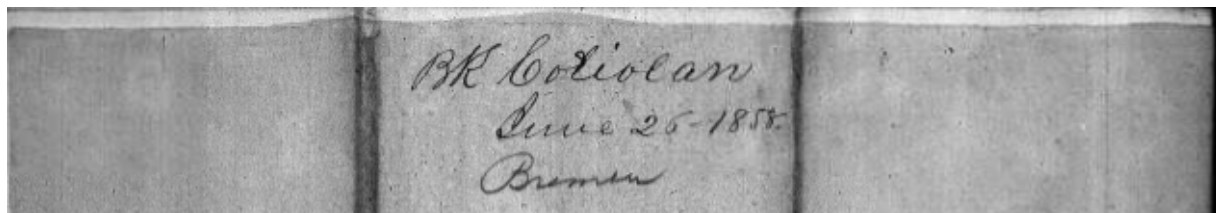 BK Coriolan
June 26-1858.
Bremen